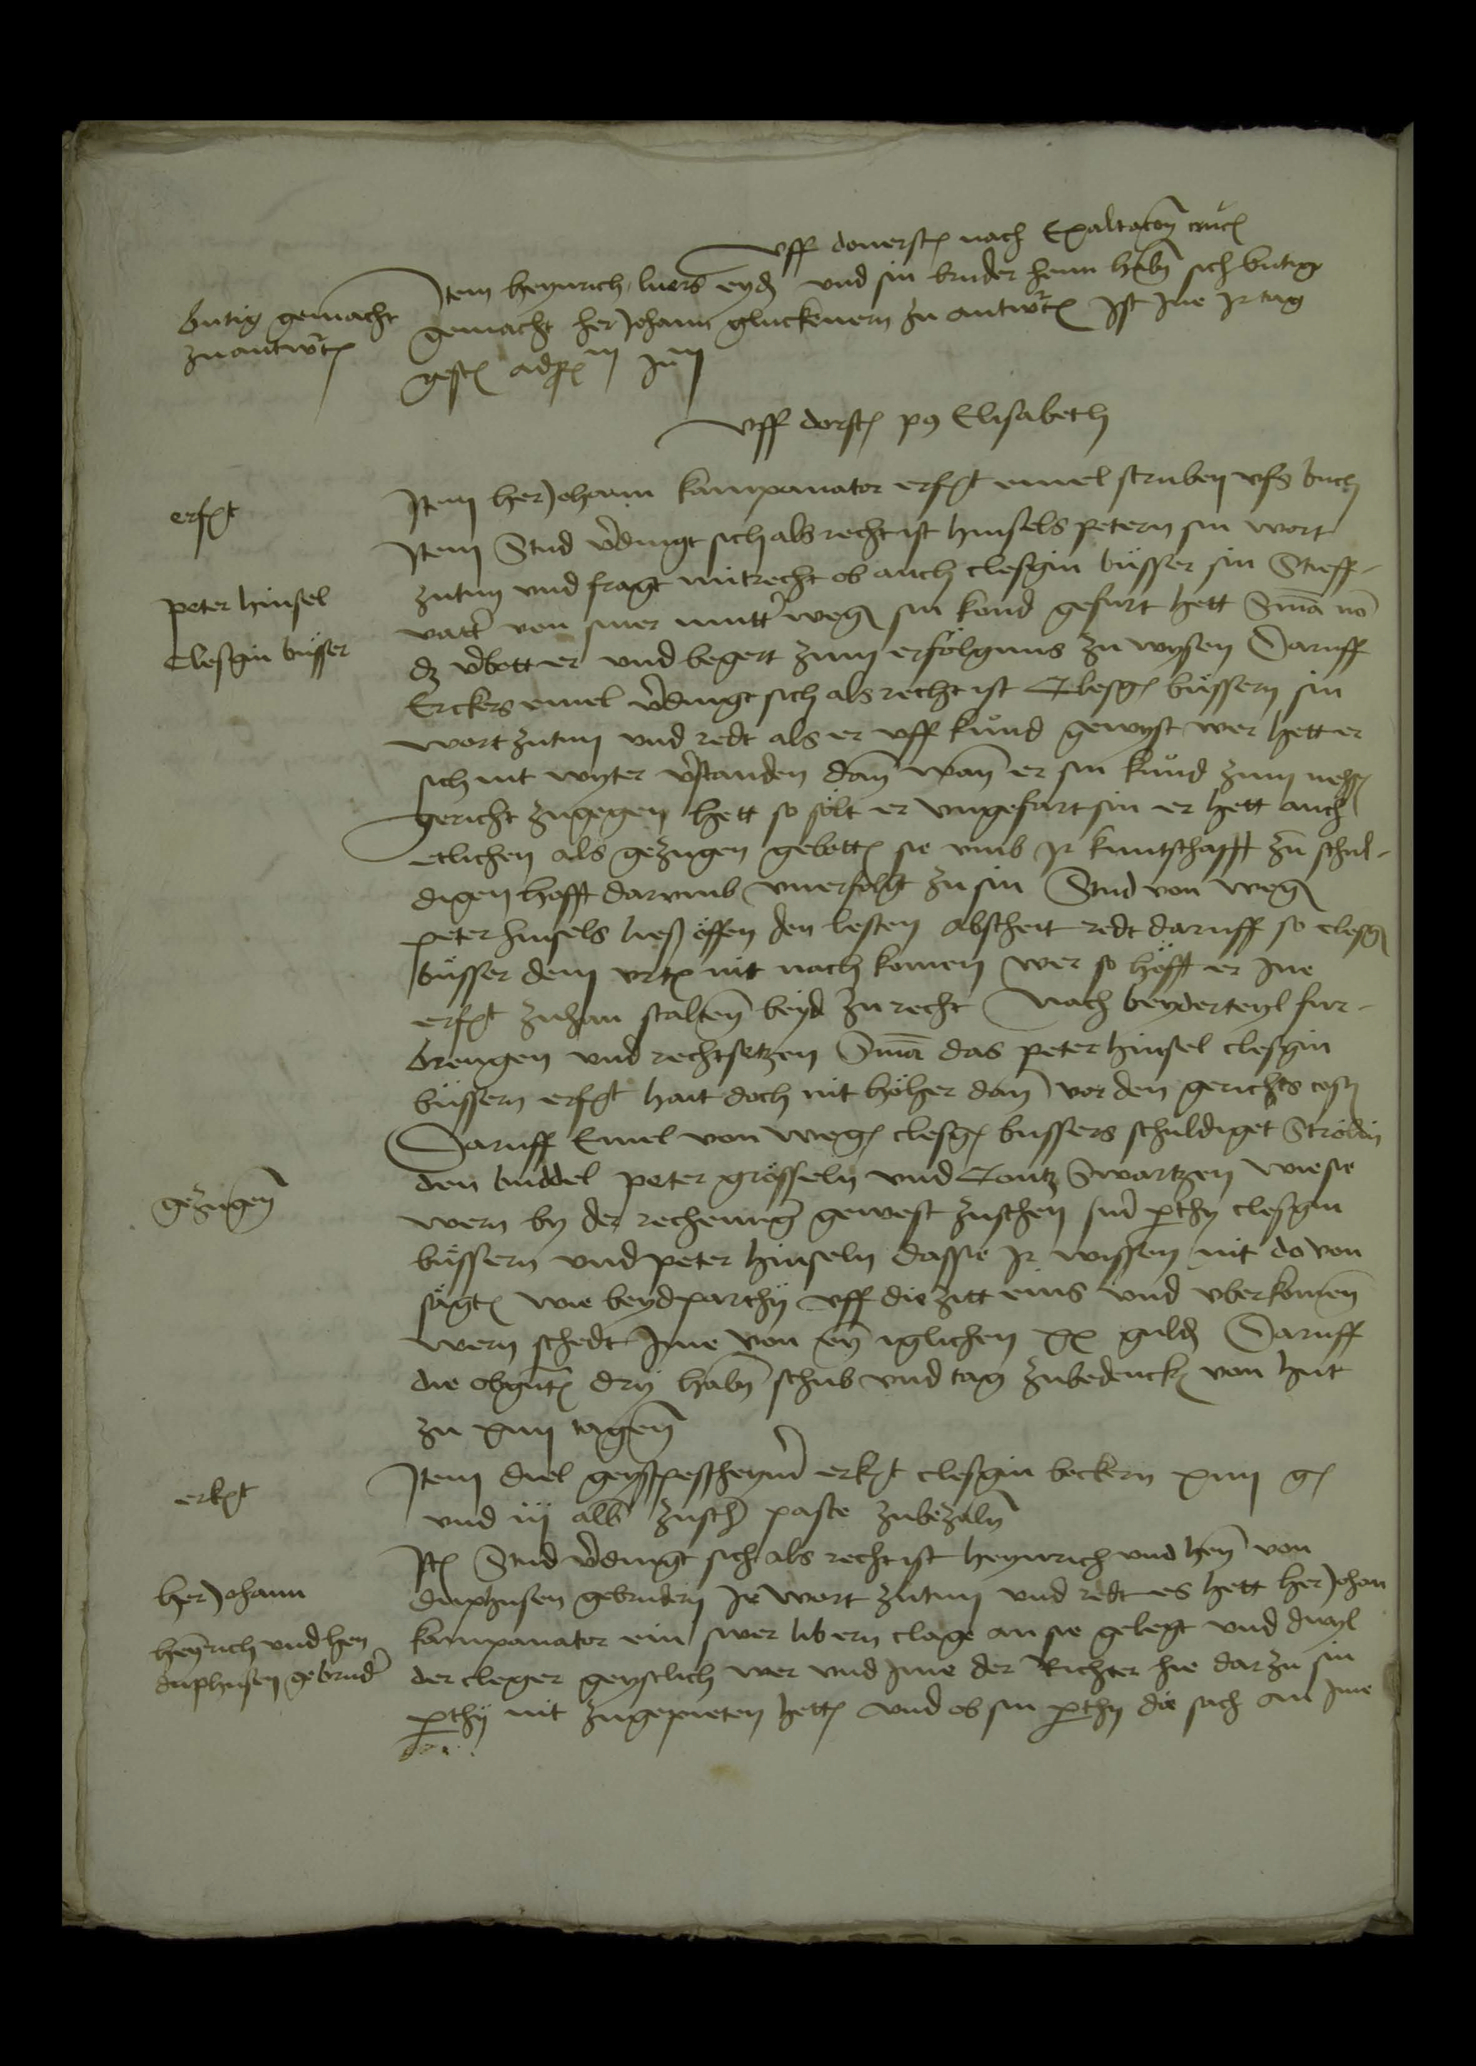 Uff donerst nach Exaltacon cruc
butig gemacht
zu antwert
Item Heynrich luers eyd und sin bruder henn habn sich butig
gemacht her Johann gluckenern zu antwert Ist Ine Ir tag
gest ad
Uff dorst p9 Elisabeth
erkt
Item her Johann kampanator erfgt emel struben ufs buch
peter hinsel
Clesgin busser
Item Stud vdingt sich als recht ist hinsels petern sin wort
zutun und fragt mit recht ob auch clesgin büsser sin Stieff-
vatt von siner mutt wegen sin kond gefurt hett Sma no
dz vbott er und begert zum erfolgnus zu wysen Daruff
Erckers emel vdingt sich als recht ist Clesg büssern sin
wort zutun und redt als er uff kund gewyst wer hett er
sich nit wyter vstanden dan wan er sin kund zum nehst
gericht zugegen hett so solt er ungefart sin er hett auch
etlichen als gezugen gebott sie umb Ir kuntschafft zu schul-
digen hofft darumb unerfolgt zu sin Stud von weg
peter hinsels ließ offen den lesten abscheit redt daruff so clesg
büsser dem urt nit nach komen wer so hofft er Ine
erfgt zuhan stalten beyd zu recht Nach beyderteyl fur-
brengen und rechtsetzen Sma das peter hinsel clesgin
büssern erfgt hait doch nit höher dan vor den gerichts cost
gezugen
Daruff Emel von weg clesg bussers schuldiget Strödin
den buddel peter grösseln und Contz Swartzen wie sie
wern by der rechenung gewest zuschen sin pthy clesgin
büssern und peter hinseln das sie Ir wissen nit do von
sagt wie beyd parthy uff die zitt eins und uberkomen
wern schedt Ine von eyn iglichen xx guld Daruff
die obgnt dry habn schub und tag zubedenck von hut
zu xiiii tagen
erkt
Item diel erkt clesgin beckern xiiii g
und iii alb zusch paste zubezaln
her Johann
heynrich und hen
duphusen gebrud
It Stud vdingt sich als recht ist Heynrich und hen von
duphusen gebrudern Ir wort zutun und redt es hett her Johan
kampanator ein swer libern clage an sie gelegt und dwyl
der cleger geystlich wer und Ime der Richter hie darzu sin
pthy nit zugepieten hett und ob sin pthy die sach an Ime